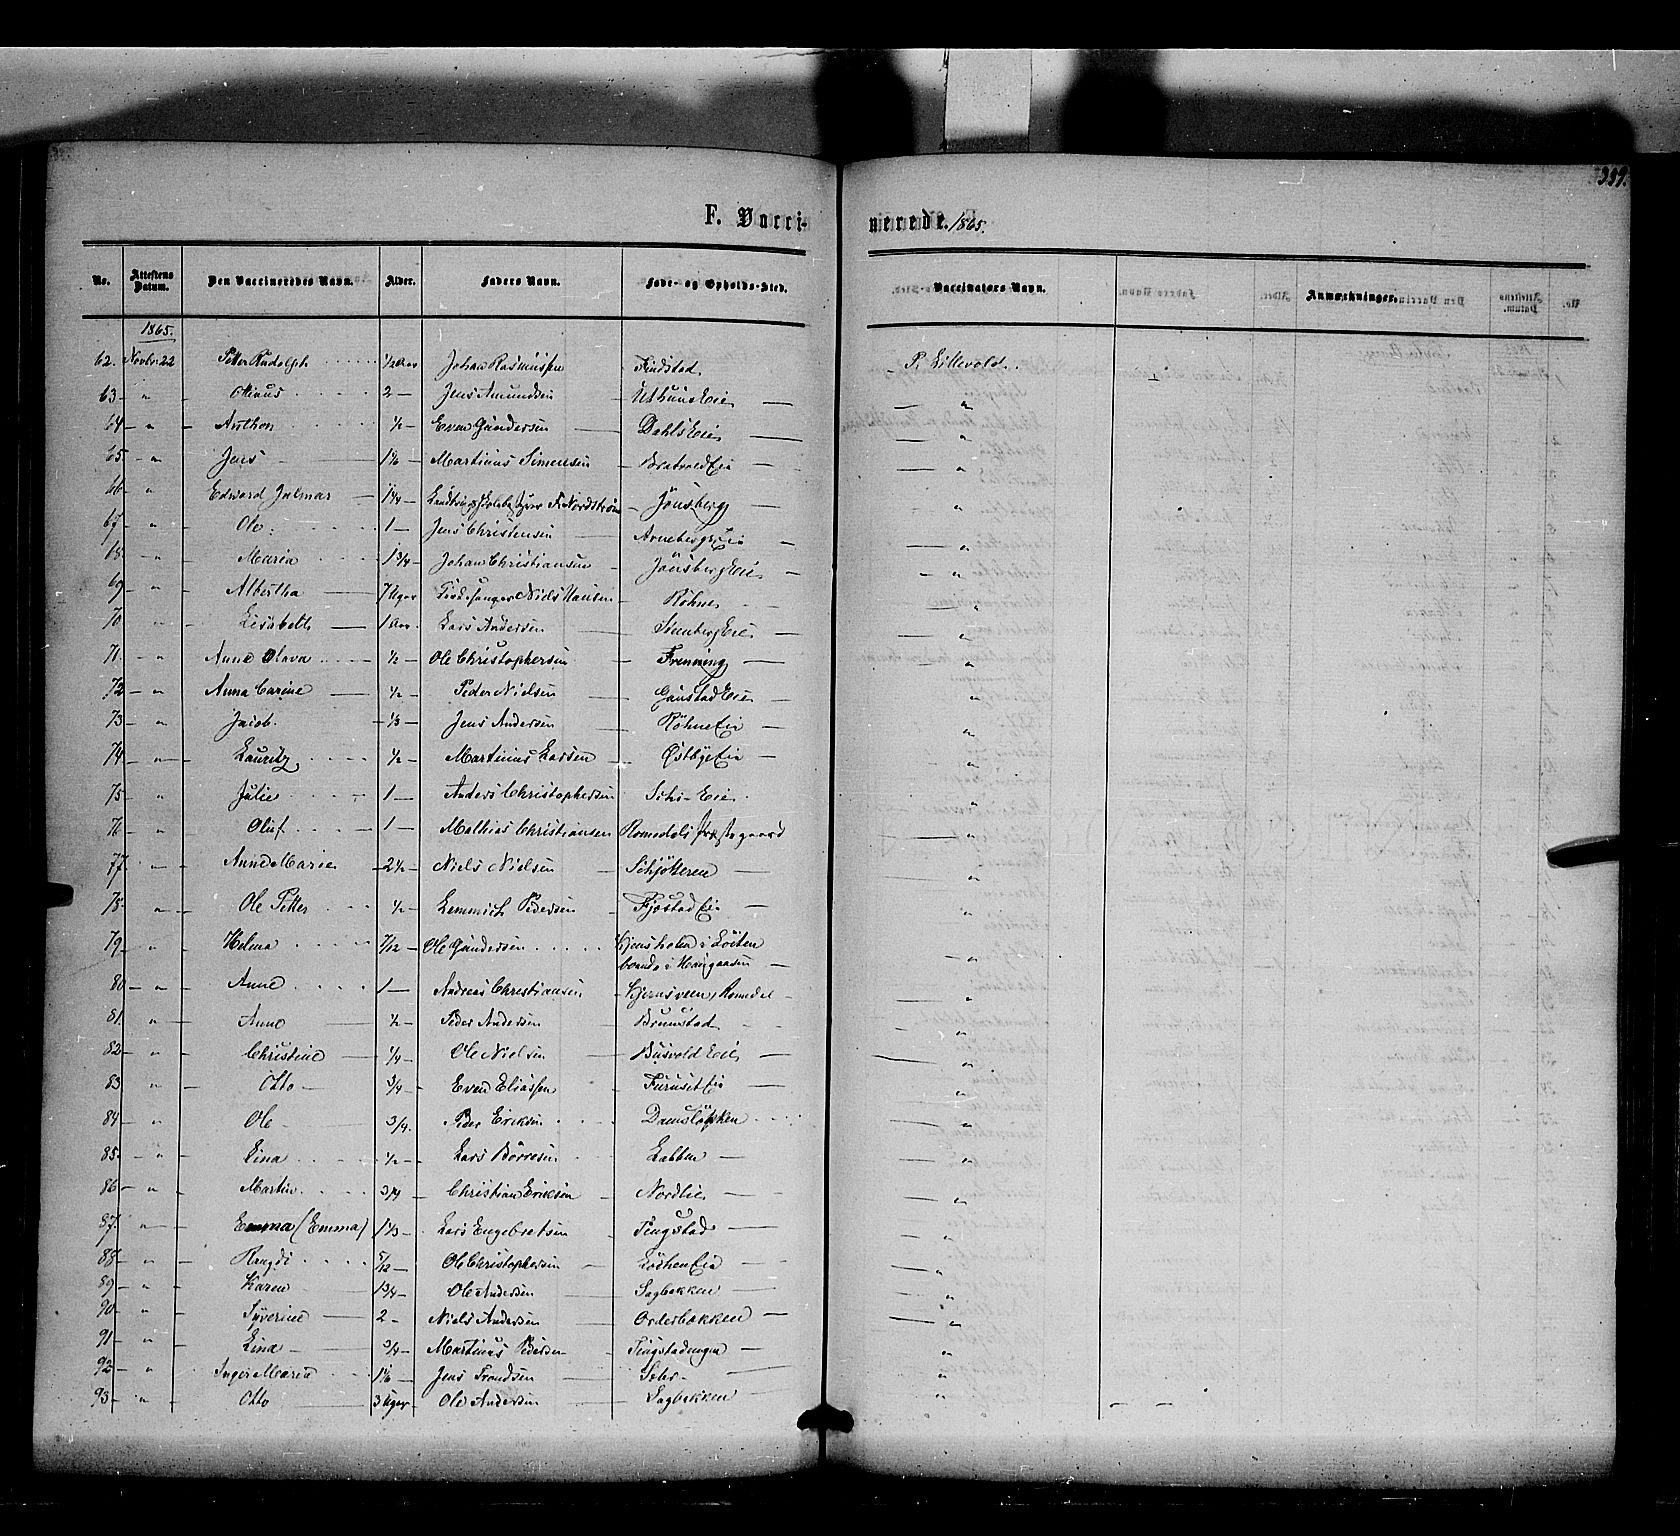 359.
F. Vacci-nerede. 1865.
No. Attestens Datum. Den Vaccineredes Navn. Alder. Faders Navn. Føde- og Opholds-Sted. Vaccinators Navn. Anmærkninger.
1865.
62. Novbr. 22 Petter Rudolph 1/2 Aar Johan Rasmussen Findstad P. Lillevold.
63 " Olinus 2 Jens Amundsen Uthuus Eie "
64 " Anthon 1/2 Even Gundersen Dahls Eie "
65 " Jens 1 1/6 Martinus Simensen "
66 " Edward Jalmar 1 1/4 F. Nordstrøm Jönsberg "
67 " Ole 1 Jens Christensen Arneberg Eie "
68 " Maria 1 3/4 Johan Christiansen Jönsberg Eie "
69 " Albertha 7 Uger Niels Hansen Röhne "
70 " Lisabeth 1 Aar Lars Andersen Sønberg Eie "
71 " Anne Olava 1/2 Ole Christophersen Frenning "
72 " Anna Carine 1/2 Peder Nielsen Gaustad Eie "
73 " Jacob 1/3 Jens Andersen Röhne Eie "
74 " Lauritz 1/2 Martinus Larsen Østbye Eie "
75 " Julie 1 Anders Christophersen Eie "
76 " Oluf 1 Mathias Christiansen Romedals Præstegaard "
77 " Anne Marie 2 1/2 Niels Nielsen Schjötteren "
78 " Ole Petter 1/2 Lemmich Pedersen Fjøstad Eie "
79 " Helena 7/12 Ole Gundersen i Löiten
boende i Haugaasen "
80 " Anne 1 Andreas Christiansen Hjernsveen, Romedal "
81 " Anne 1/2 Peder Andersen Brunstad "
82 " Christine 1/4 Ole Nielsen Busvold Eie "
83 " Otto 3/4 Even Eliassen Furuset Eie "
84 " Ole 3/4 Peder Eriksen Damsløkken "
85 " Lina 1/2 Lars Börresen Labben "
86 " Martin 3/4 Christian Eriksen Nordlie "
87 " Emma (Emma) 1 1/3 Lars Engebretsen Tingstad "
88 " Rangdi 5/12 Ole Christophersen Løchen Eie "
89 " Karen 1 3/4 Ole Andersen Sagbakken "
90 " Syverine 2 Niels Andersen Orderbakken "
91 " Lina 3/4 Martinus Pedersen Tingstadengen "
92 " Inger Marie 1 1/6 Jens Trondsen "
93 " Otto 3 Uger Ole Andersen Sagbakken "